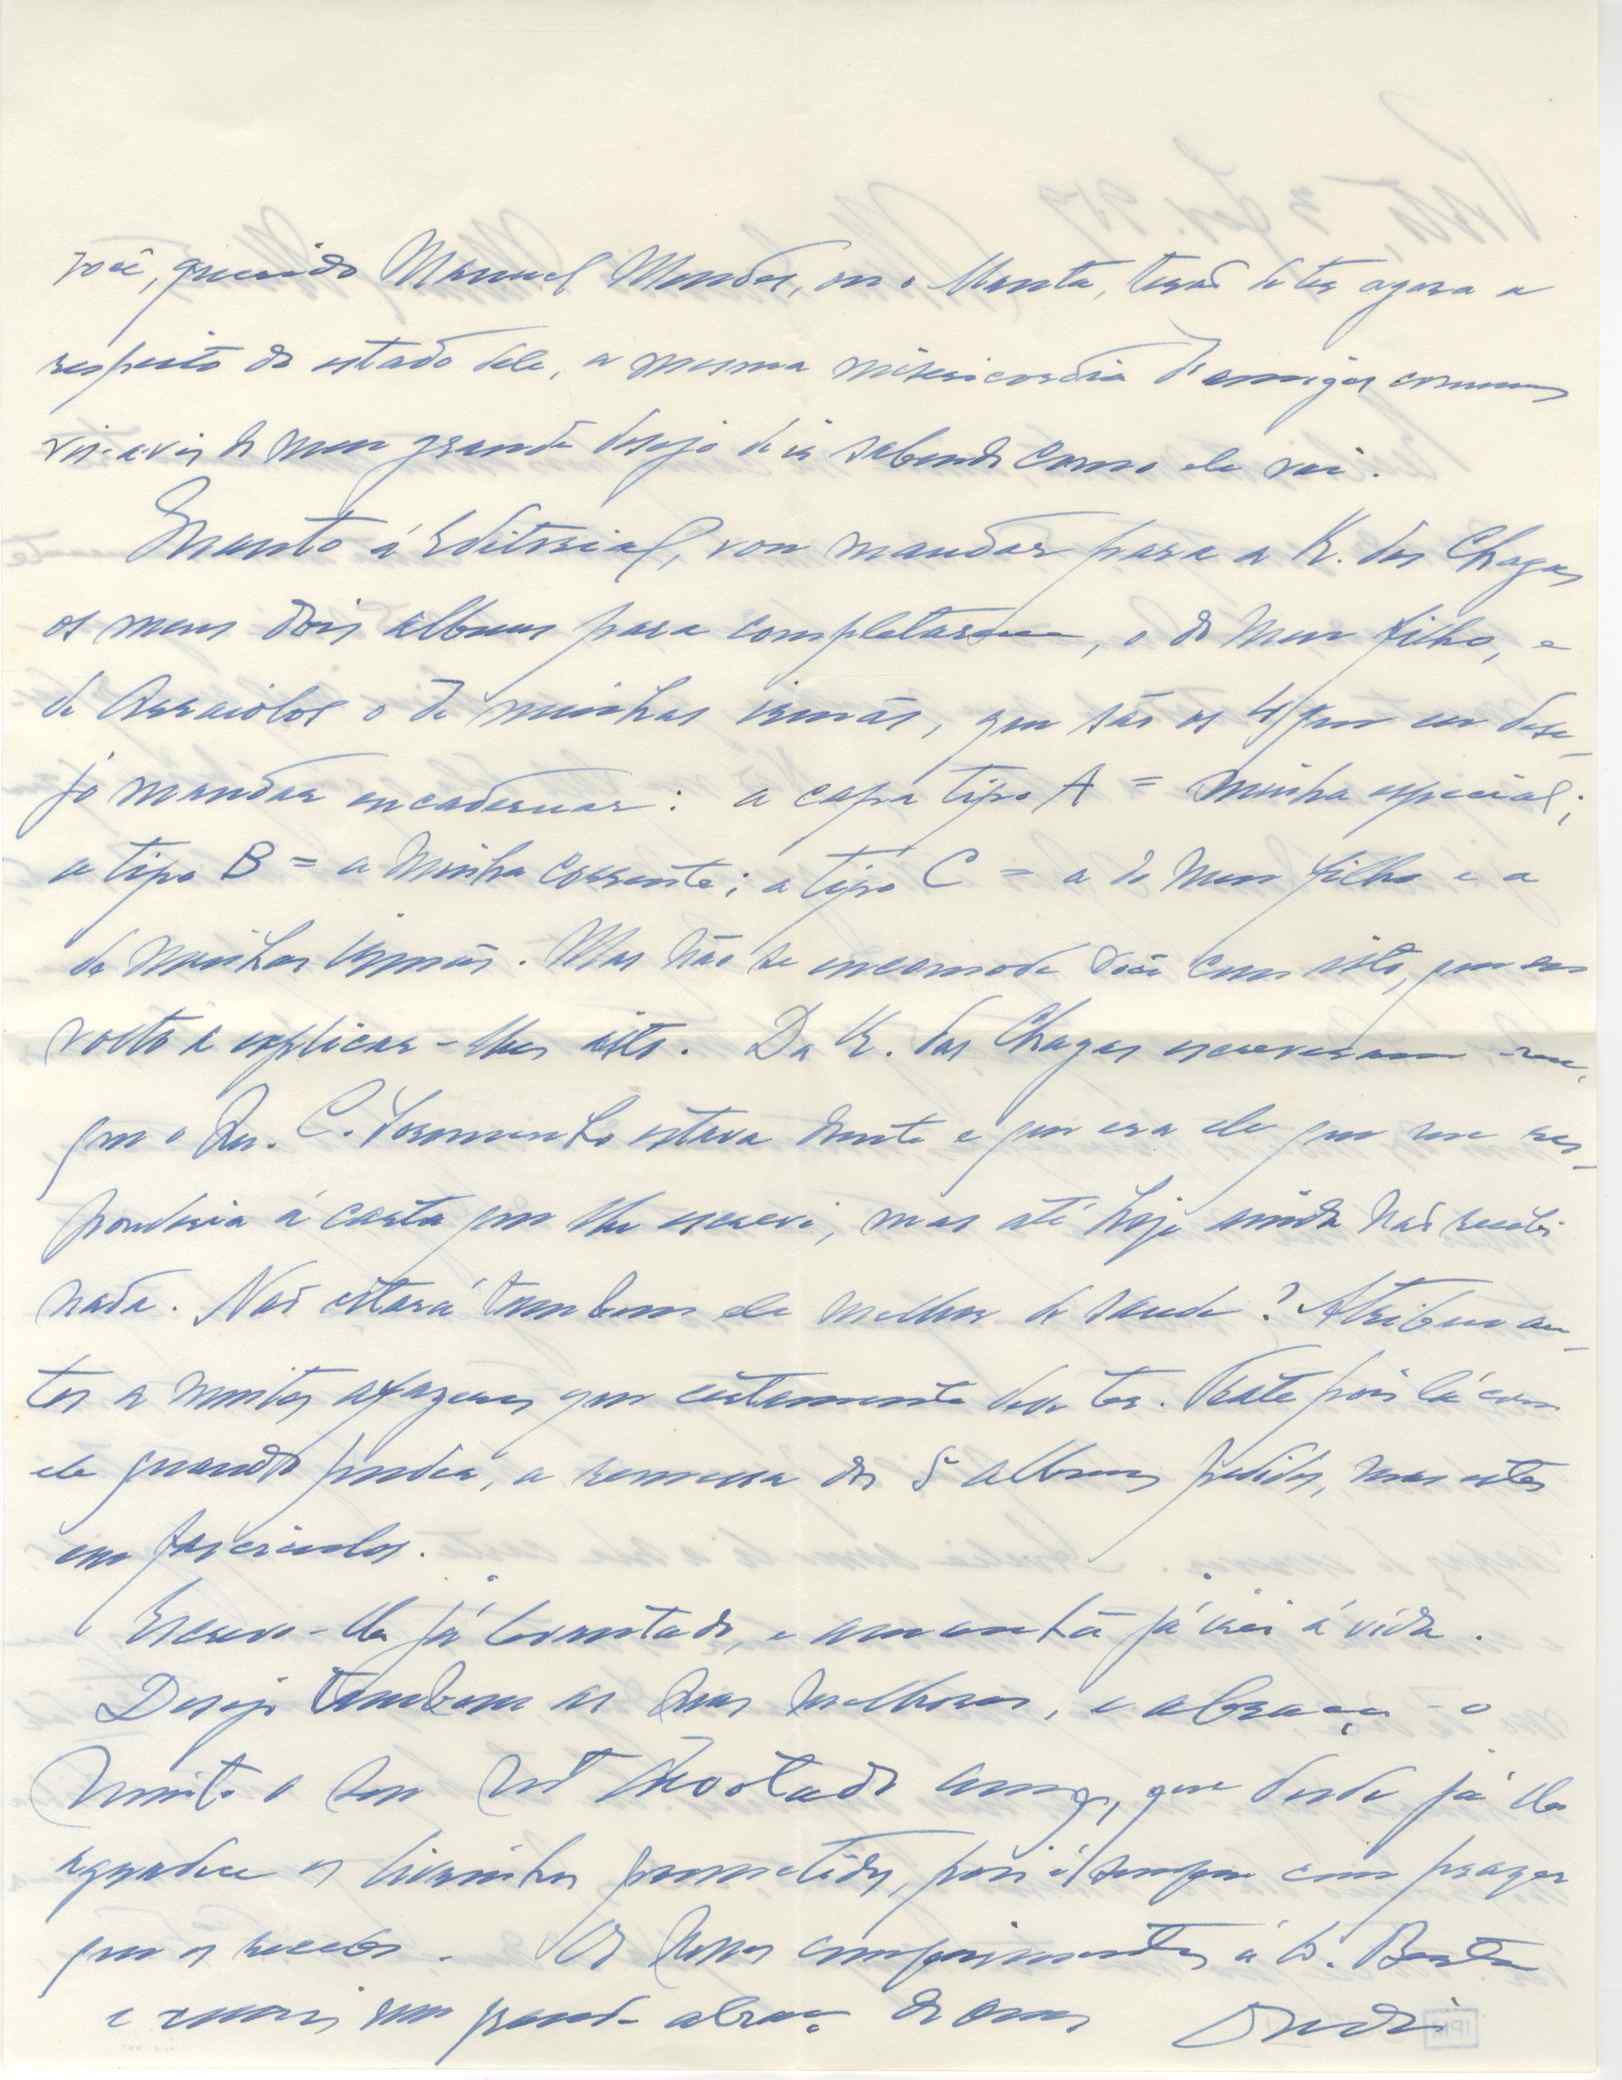 você, querido Manuel Mendes, ou o Manta, terão de ter agora a
respeito do estado dele, a mesma misericordia d'amigos comuns
vis-a-vis do meu grande desejo de ir sabendo como ele vai.
Quanto á Editorial, vou mandar para a R. das Chagas
os meus dois albuns para completarem, o do meu filho, e
de Arraiolos o de minhas irmãs, que são os 4 que eu dese-
jo mandar encadernar: a capa tipo A = minha especial;
a tipo B = a minha corrente; a tipo C = a de meu filho e a
de minhas irmãs. Mas não se incomode você com isto, que eu
volto a explicar-lhes isto. Da R. das Chagas escreveram-me,
que o Snr. C. Sarmento estava doente e que era ele que me res-
ponderia á carta que lhe escrevi, mas até hoje ainda não recebi
nada. Não estará tambem ele melhor de saude? Atribuo an-
tes a muitos afazeres que certamente deve ter. Trate pois lá com
ele quando puder, a remessa dos 5 albuns pedidos, mas estes
em fasciculos.
Escrevo-lhe já levantado, e amanhã já irei á vida.
Desejo tambem as suas melhoras, e abraça-o
muito o seu mt devotado amigo, que desde já lhe
agradece os livrinhos prometidos, pois é sempre com prazer
que os recebo. Os nossos cumprimentos á D. Berta
e mais um grande abraço do seu